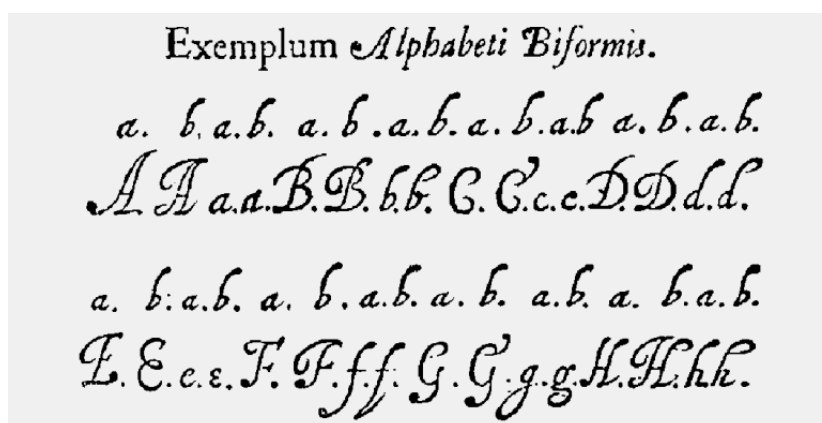 Exemplum Alphabeti Biformis.
a. b. a.b. a. b.a.b. a. b.a.b a. b.a.b.
A A a.a.B.B.b.b. C. C.c.c.D.D.d.d.
a. b: a.b. a. b. a.b. a. b. a.b. a. b.a.b.
E. E.e.ε.F. F.f.f. G. G.g.g.H.H.h.h.